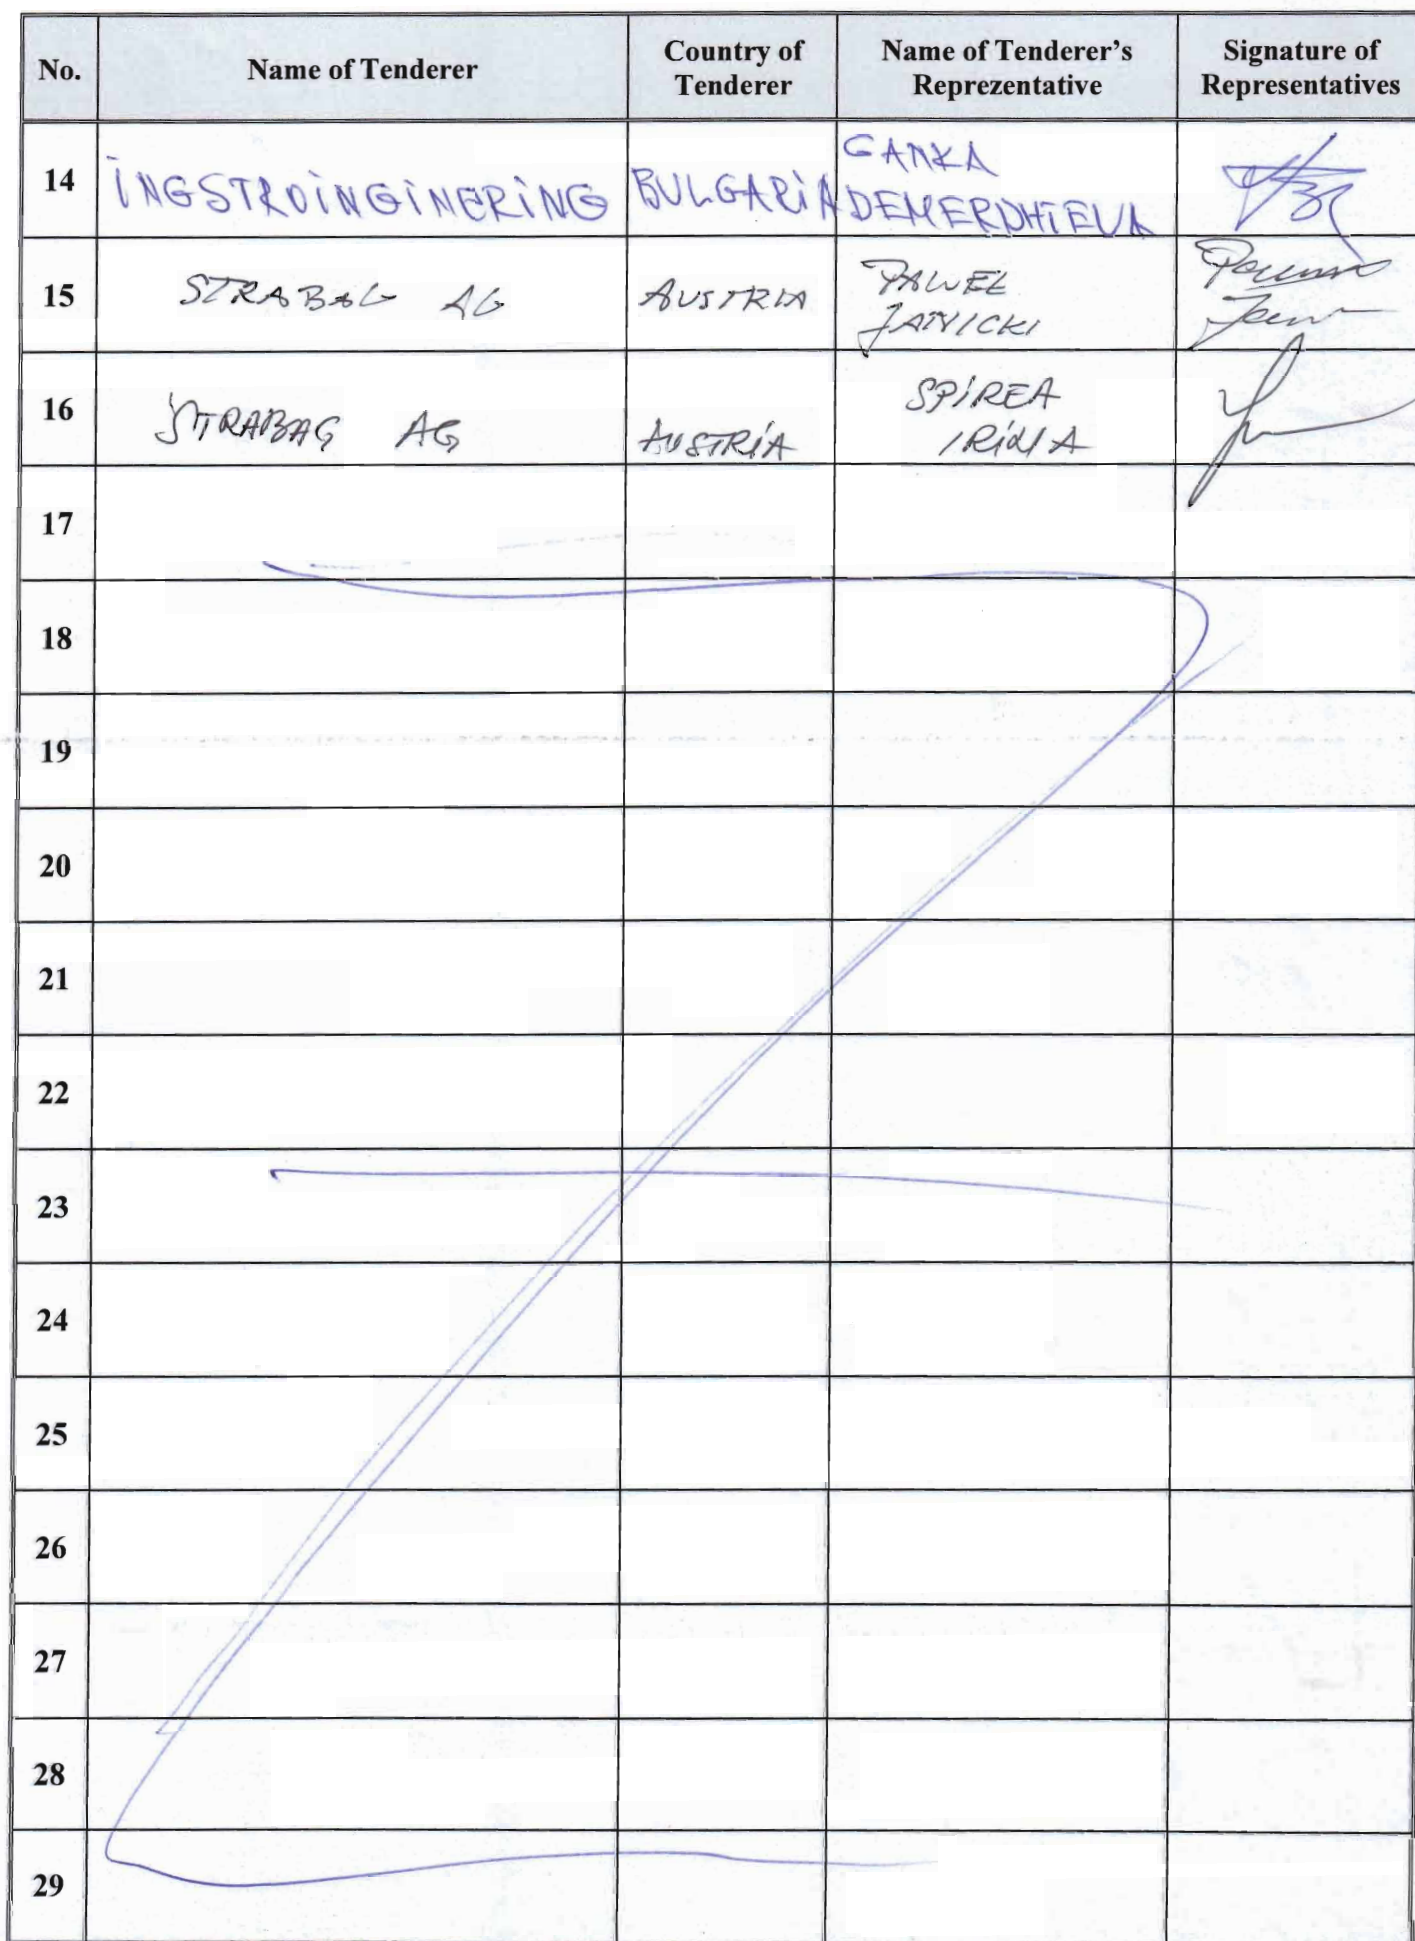 No. Name of Tenderer Country of Tenderer Name of Tenderer's Reprezentative Signature of Representatives
14 INGSTROINGINERING BULGARIA GANKA DEMERDHIEVA
15 STRABAG AG AUSTRIA PAWEL JANICKI
16 STRABAG AG AUSTRIA SPIREA IRINA
17
18
19
20
21
22
23
24
25
26
27
28
29